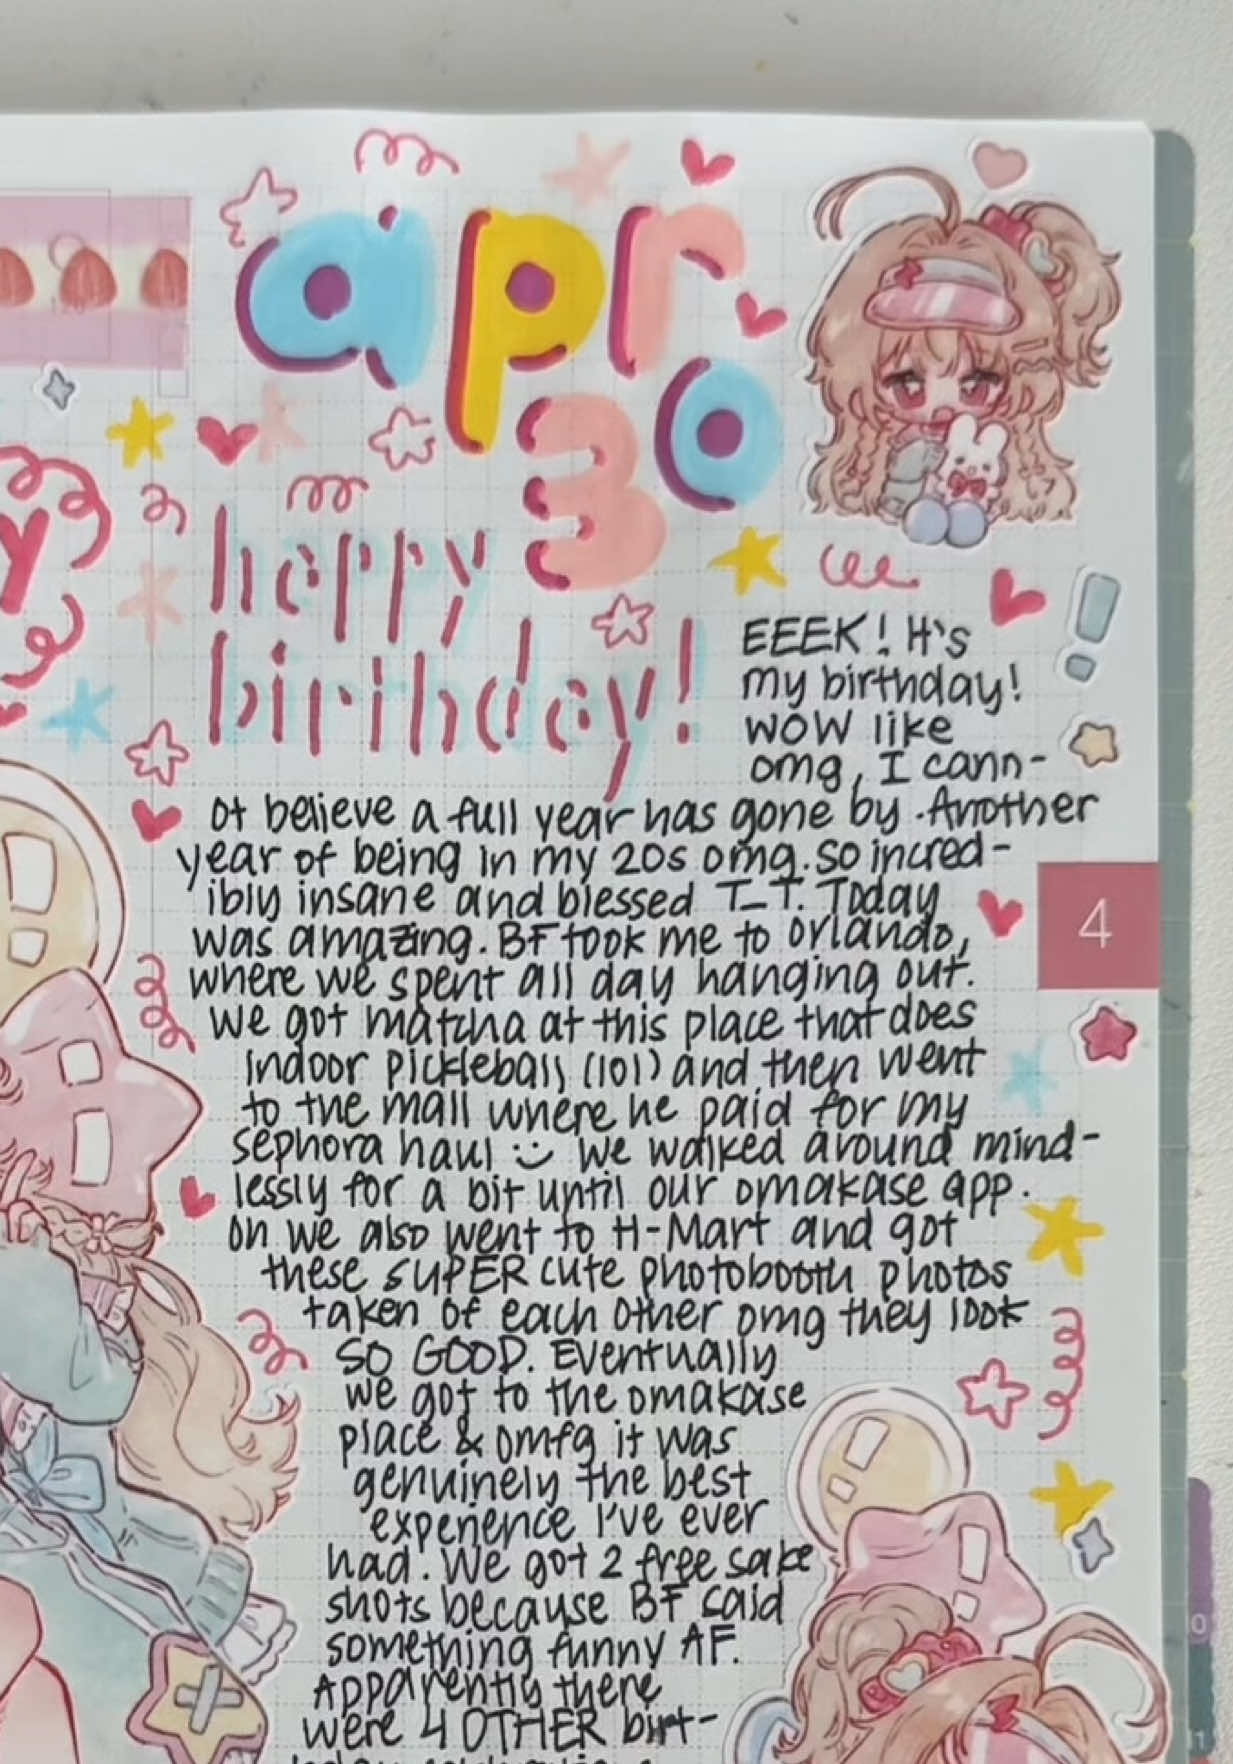 apr
30
happy
birthday!
EEEK! It's
my birthday!
WOW like
omg, I cann-
ot believe a full year has gone by. Another
year of being in my 20s omg. so incred-
ibly insane and blessed T_T. Today
was amazing. BF took me to Orlando,
where we spent all day hanging out.
We got matcha at this place that does
indoor pickleball (lol) and then went
to the mall where he paid for my
sephora haul :) We walked around mind-
lessly for a bit until our omakase app.
Oh we also went to H-Mart and got
these SUPER cute photobooth photos
taken of each other omg they look
SO GOOD. Eventually
we got to the omakase
place & omfg it was
genuinely the best
experience I've ever
had. We got 2 free sake
shots because BF said
something funny AF.
Apparently there
were 4 OTHER birt-
4
y
0
11